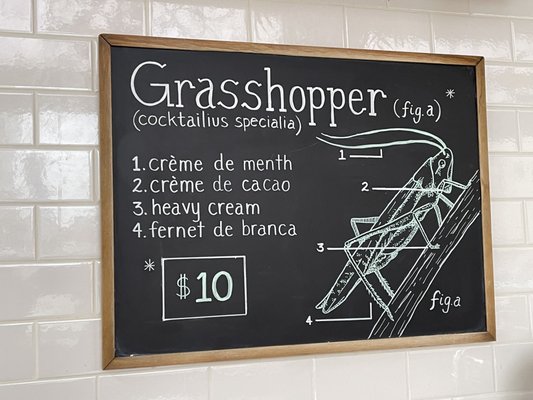 Grasshopper (fig.a) *
(cocktailius specialia)
1. crème de menth
2. crème de cacao
3. heavy cream
4. fernet de branca
* $10
1
2
3
4
fig.a